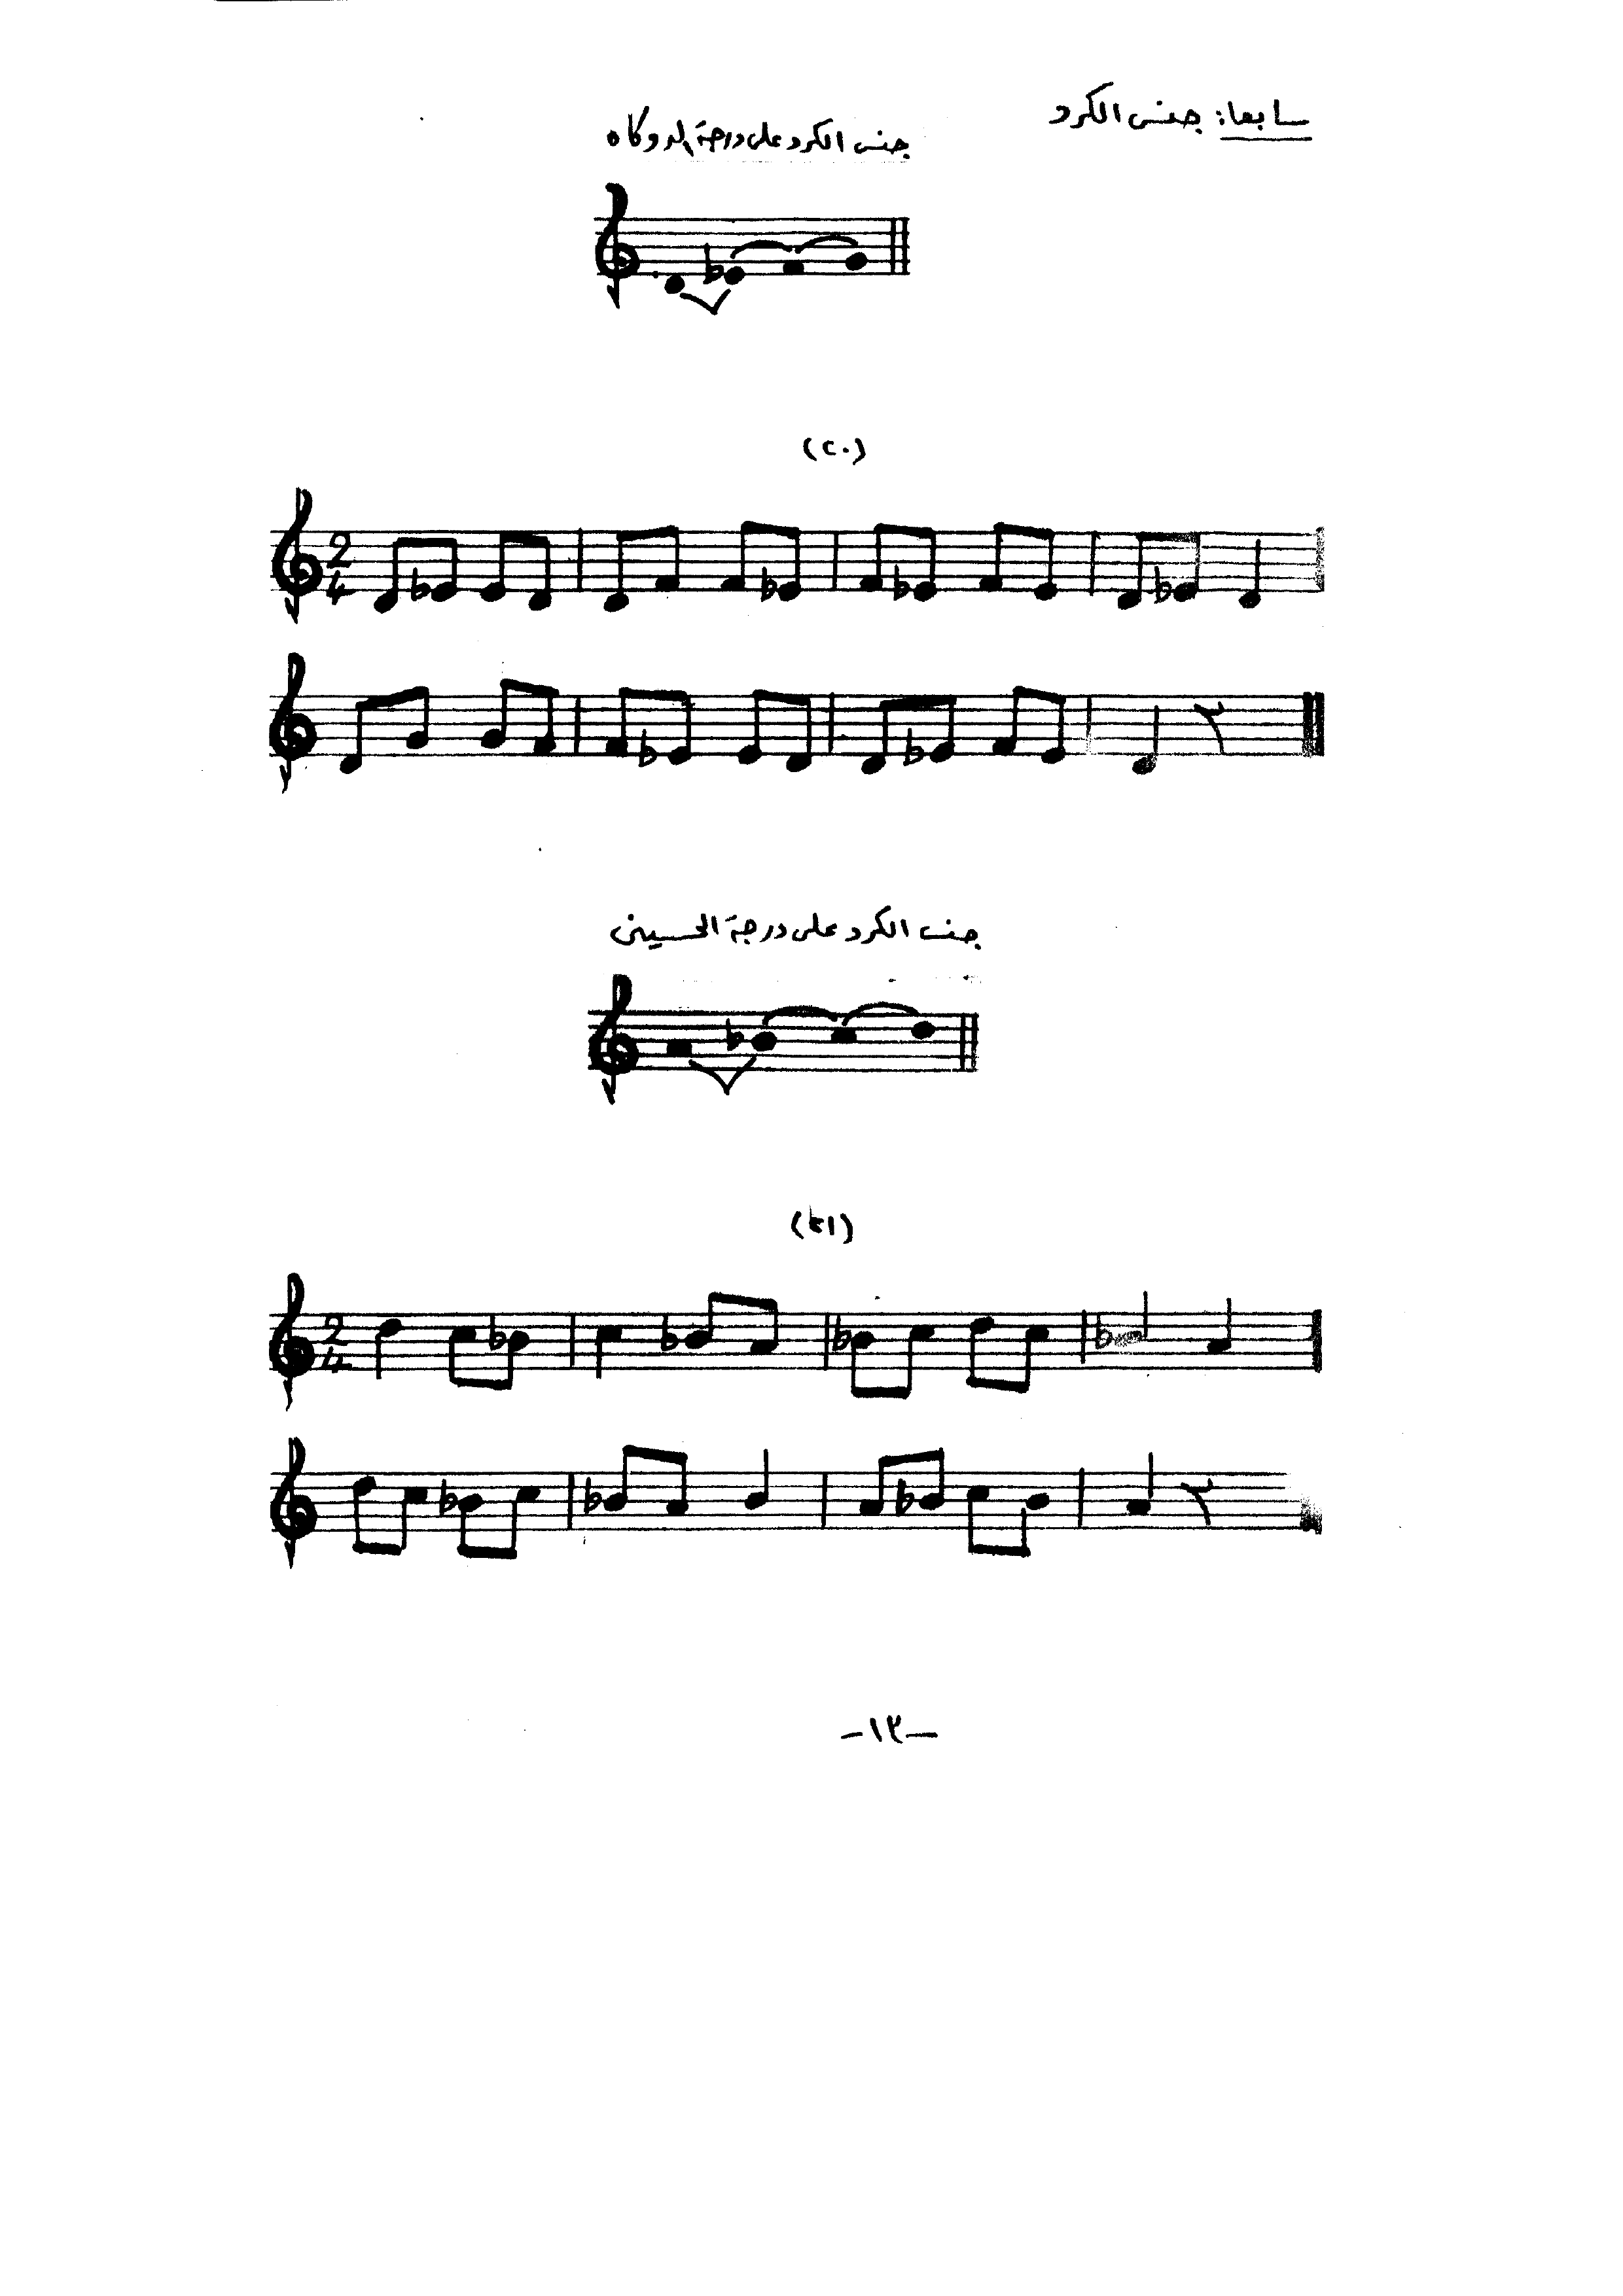 سابعا: جنس الكرد
جنس الكرد على درجة الدوكاه
(٢٠)
2
4
جنس الكرد على درجة الحسينى
(٢١)
2
4
-١٣-